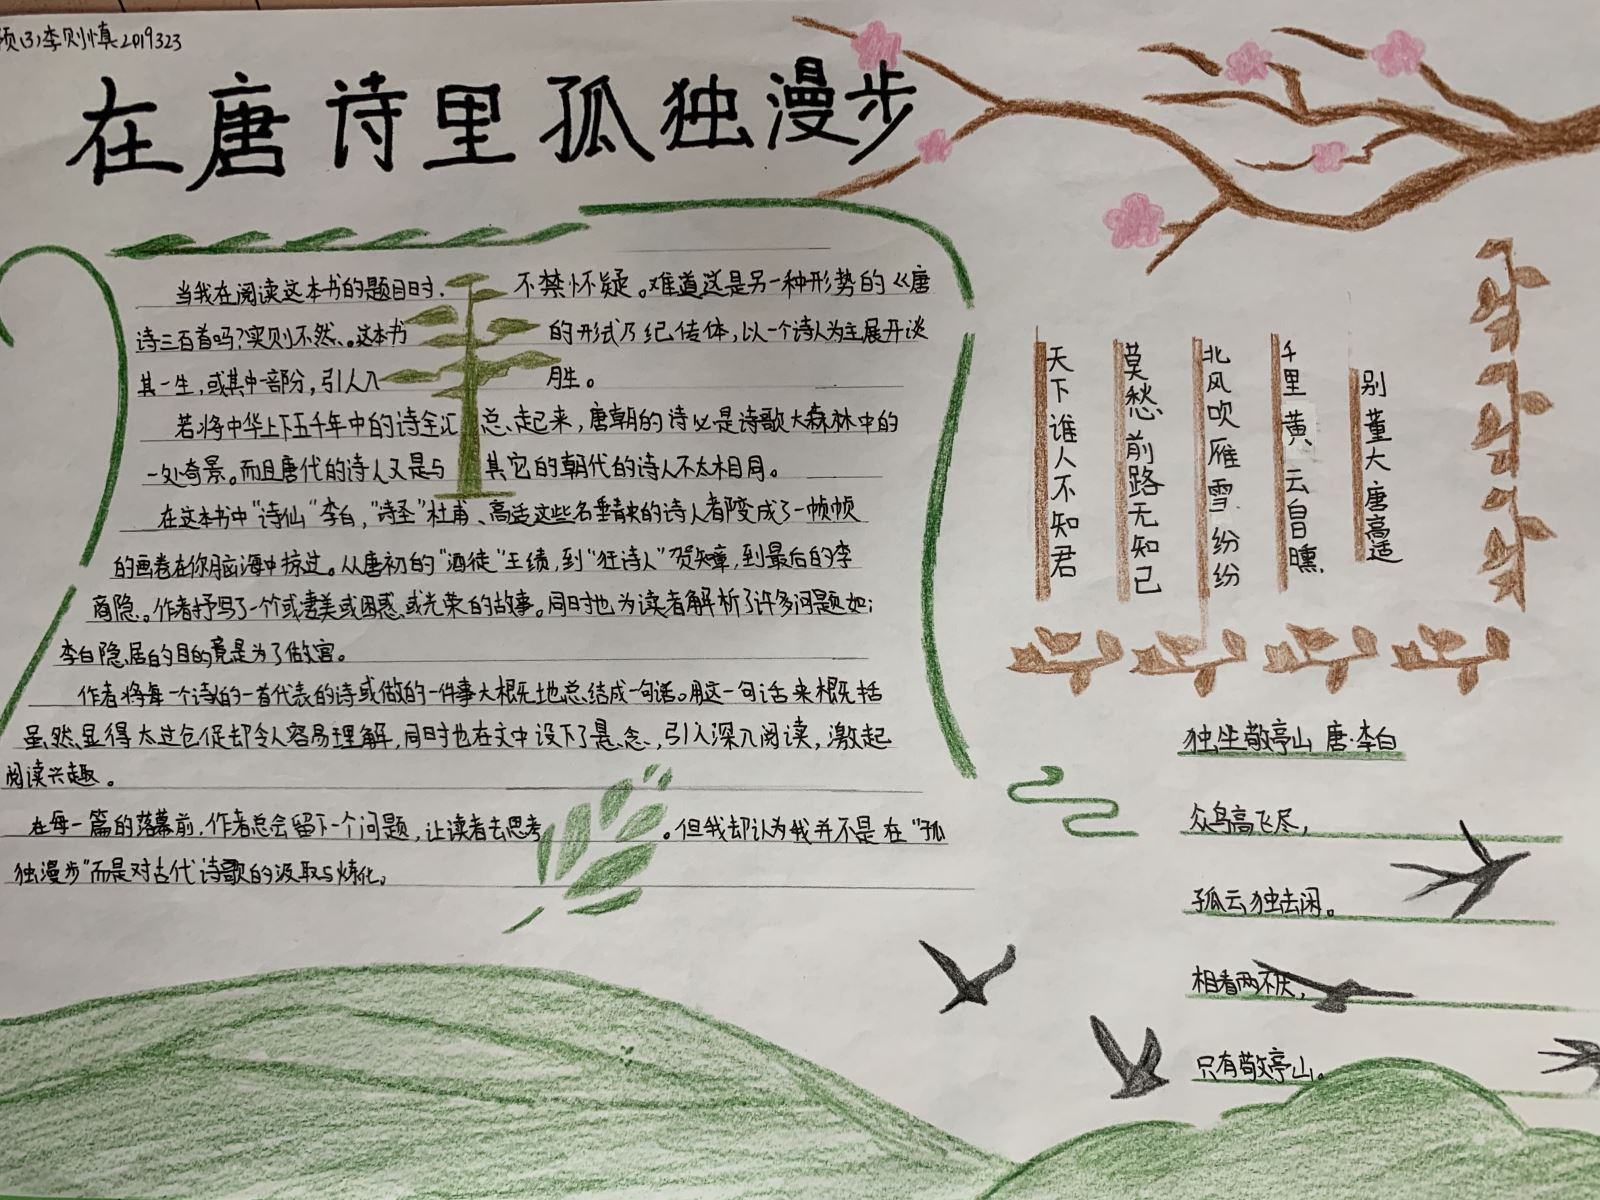 预(3)李则慎2019323
在唐诗里孤独漫步
当我在阅读这本书的题目时.不禁怀疑。难道这是另一种形势的《唐
诗三百首吗?实则不然、。这本书的形式乃纪传体,以一个诗人为主展开谈
其一生,或其中一部分,引人入胜。
若将中华上下五千年中的诗全汇总、起来,唐朝的诗必是诗歌大森林中的
一处奇景。而且唐代的诗人又是与其它的朝代的诗人不太相同。
在这本书中"诗仙"李白,"诗圣"杜甫、高适这些名垂青史的诗人都变成了一帧帧
的画卷在你脑海中掠过。从唐初的"酒徒"王绩,到"狂诗人"贺知章,到最后的李
商隐。作者抒写了一个个或凄美或困惑或光荣的故事。同时也为读者解析了许多问题如:
李白隐居的目的竟是为了做官。
作者将每一个诗人的一首代表的诗或做的一件事大概地总结成一句话。用这一句话来概括
虽然、显得太过仓促却令人容易理解,同时也在文中设下了悬念,引人深入阅读,激起
阅读兴趣。
在每一篇的落幕前,作者总会留下一个问题,让读者去思考。但我却认为我并不是在"孤
独漫步"而是对古代诗歌的汲取与炼化。
别董大 唐高适
千里黄云白日曛,
北风吹雁雪纷纷
莫愁前路无知己
天下谁人不知君
独坐敬亭山 唐·李白
众鸟高飞尽,
孤云独去闲。
相看两不厌,
只有敬亭山。